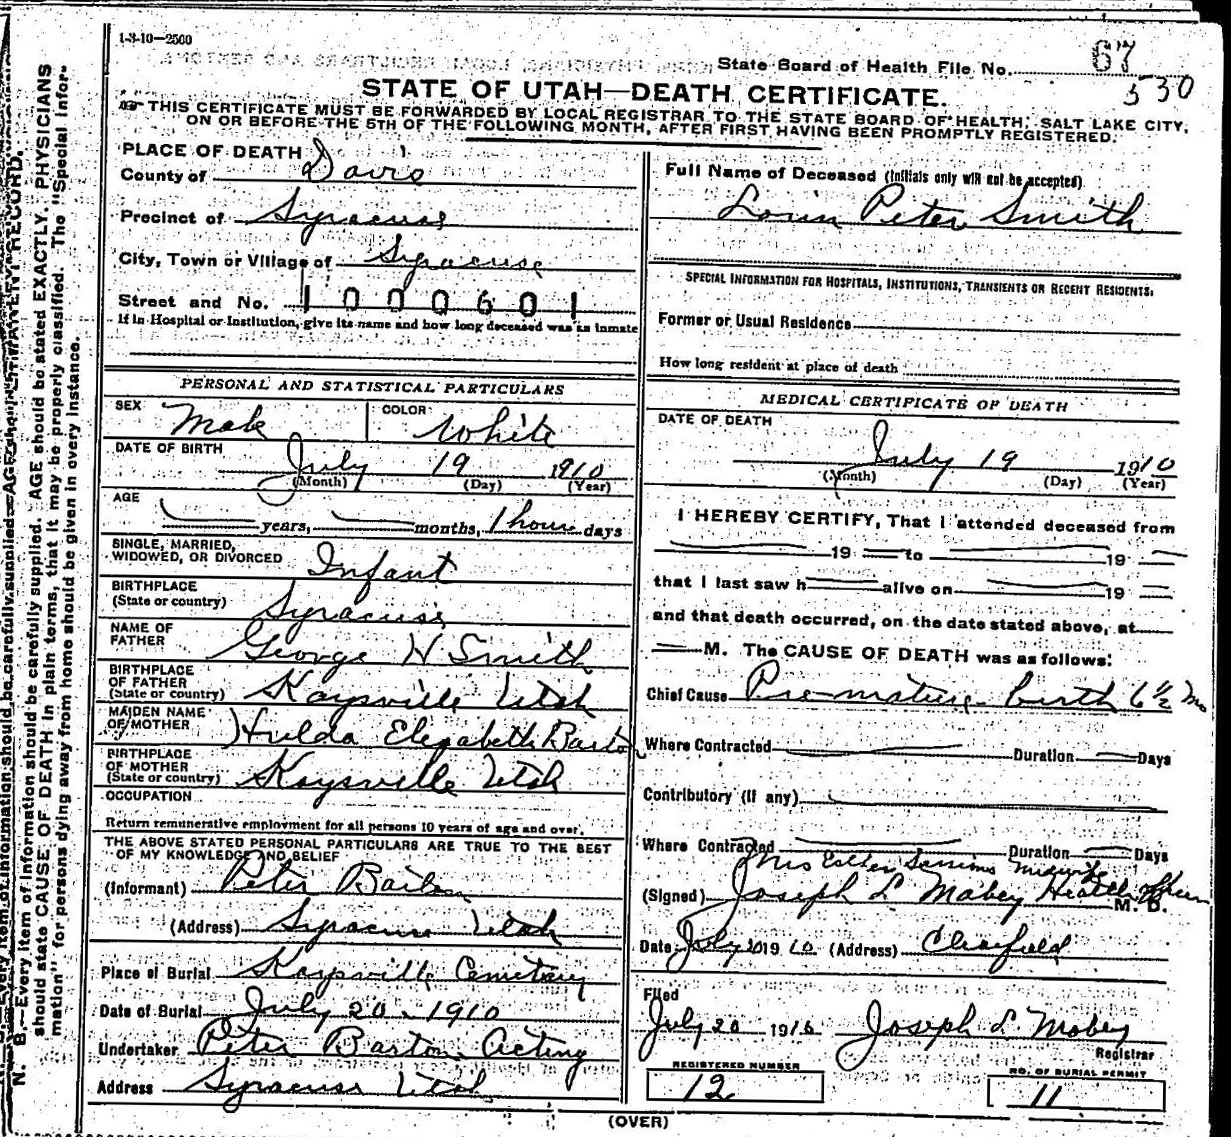 1-3-10—2500
State Board of Health File No. 67
530
STATE OF UTAH—DEATH CERTIFICATE.
THIS CERTIFICATE MUST BE FORWARDED BY LOCAL REGISTRAR TO THE STATE BOARD OF HEALTH, SALT LAKE CITY,
ON OR BEFORE THE 5TH OF THE FOLLOWING MONTH, AFTER FIRST HAVING BEEN PROMPTLY REGISTERED.
PLACE OF DEATH
County of Davis
Precinct of Syracuse
City, Town or Village of Syracuse
Street and No. 1000601
If in Hospital or Institution, give its name and how long deceased was an inmate
PERSONAL AND STATISTICAL PARTICULARS
SEX Male COLOR White
DATE OF BIRTH July 19 1910
(Month) (Day) (Year)
AGE years, months, 1 hour days
SINGLE, MARRIED,
WIDOWED, OR DIVORCED Infant
BIRTHPLACE
(State or country) Syracuse
NAME OF
FATHER George H Smith
BIRTHPLACE
OF FATHER
(State or country) Kaysville Utah
MAIDEN NAME
OF MOTHER Hulda Elezabeth Barton
BIRTHPLACE
OF MOTHER
(State or country) Kaysville Utah
OCCUPATION
Return remunerative employment for all persons 10 years of age and over.
THE ABOVE STATED PERSONAL PARTICULARS ARE TRUE TO THE BEST
OF MY KNOWLEDGE AND BELIEF
(Informant) Peter Barton
(Address) Syracuse Utah
Place of Burial Kaysville Cemetary
Date of Burial July 20 - 1910
Undertaker Peter Barton Acting
Address Syracuse Utah
Full Name of Deceased (Initials only will not be accepted)
Lorin Peter Smith
SPECIAL INFORMATION FOR HOSPITALS, INSTITUTIONS, TRANSIENTS OR RECENT RESIDENTS:
Former or Usual Residence
How long resident at place of death
MEDICAL CERTIFICATE OF DEATH
DATE OF DEATH
July 19 1910
(Month) (Day) (Year)
I HEREBY CERTIFY, That I attended deceased from
19 to 19
that I last saw h alive on 19
and that death occurred, on the date stated above, at
M. The CAUSE OF DEATH was as follows:
Chief Cause Pre-mature birth 6½ mo
Where Contracted Duration Days
Contributory (if any)
Where Contracted Duration Days
Mrs Esther Midwife
(Signed) Joseph L Mabey Health Officer M. D.
Date July 20 1910 (Address) Clearfield
Filed
July 20 1910 Joseph L. Mabey
Registrar
REGISTERED NUMBER
12
NO. OF BURIAL PERMIT
11
(OVER)
N. B.—Every item of information should be carefully supplied. AGE should be stated EXACTLY. PHYSICIANS
should state CAUSE OF DEATH in plain terms, that it may be properly classified. The "Special Infor-
mation" for persons dying away from home should be given in every instance.